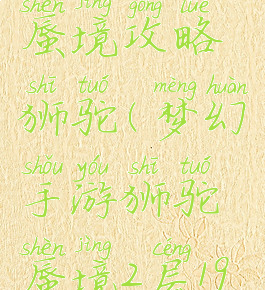 shèn jìng gōng lüè
蜃境攻略
shī tuó mèng huàn
狮驼(梦幻
shǒu yóu shī tuó
手游狮驼
shèn jìng céng
蜃境2层19